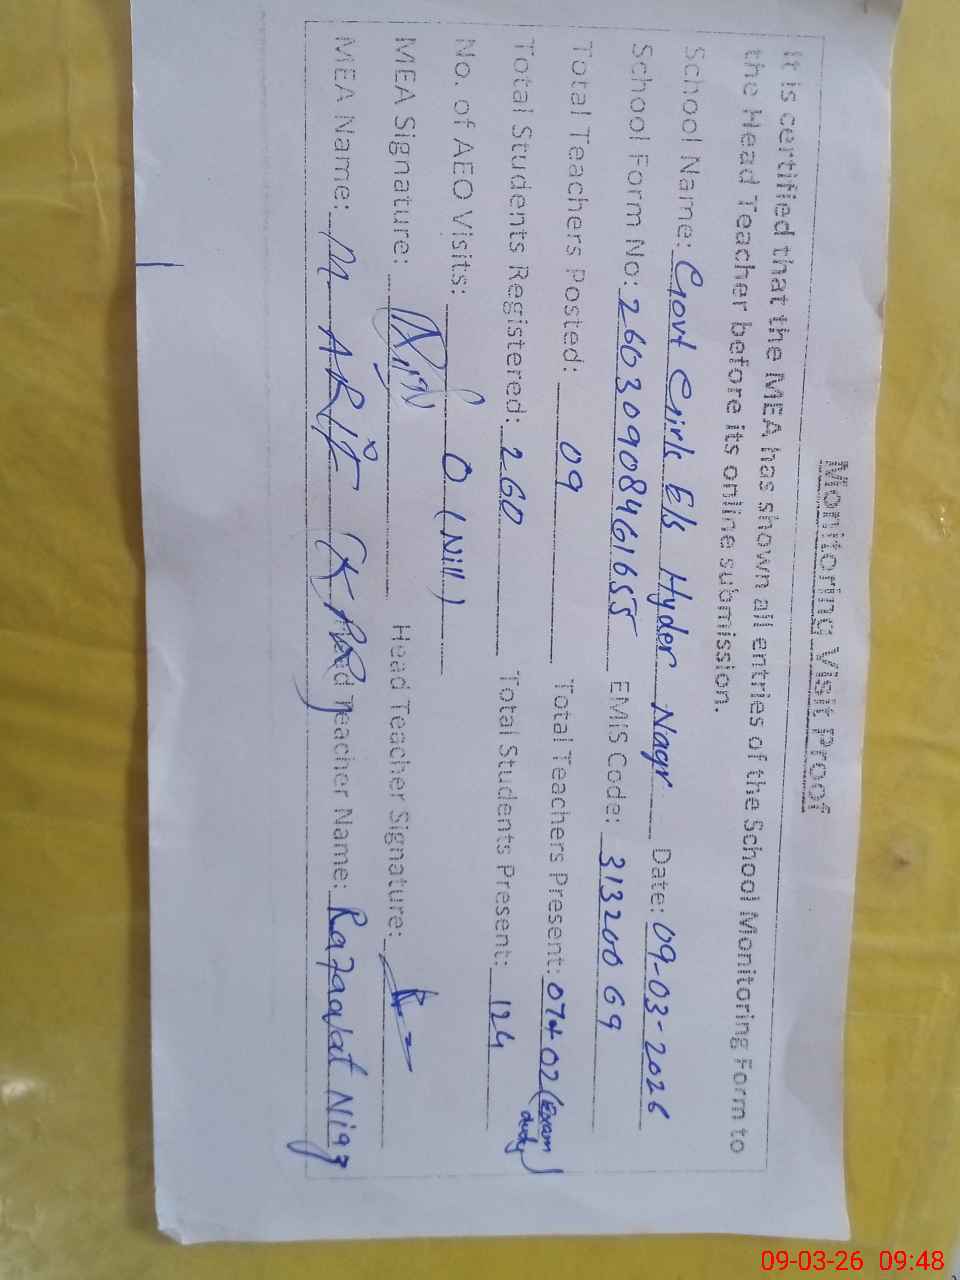 Monitoring Visit Proof
It is certified that the MEA has shown all entries of the School Monitoring Form to
the Head Teacher before its online submission.
School Name: Govt Girls E/s Hyder Nagr Date: 09-03-2026
School Form No: 26030908461655 EMIS Code: 31320069
Total Teachers Posted: 09 Total Teachers Present: 07+02 (Exam duty)
Total Students Registered: 260 Total Students Present: 124
No. of AEO Visits: 0 (Nill)
MEA Signature: Head Teacher Signature:
MEA Name: M ARIF Head Teacher Name: Niaz
09-03-26 09:48